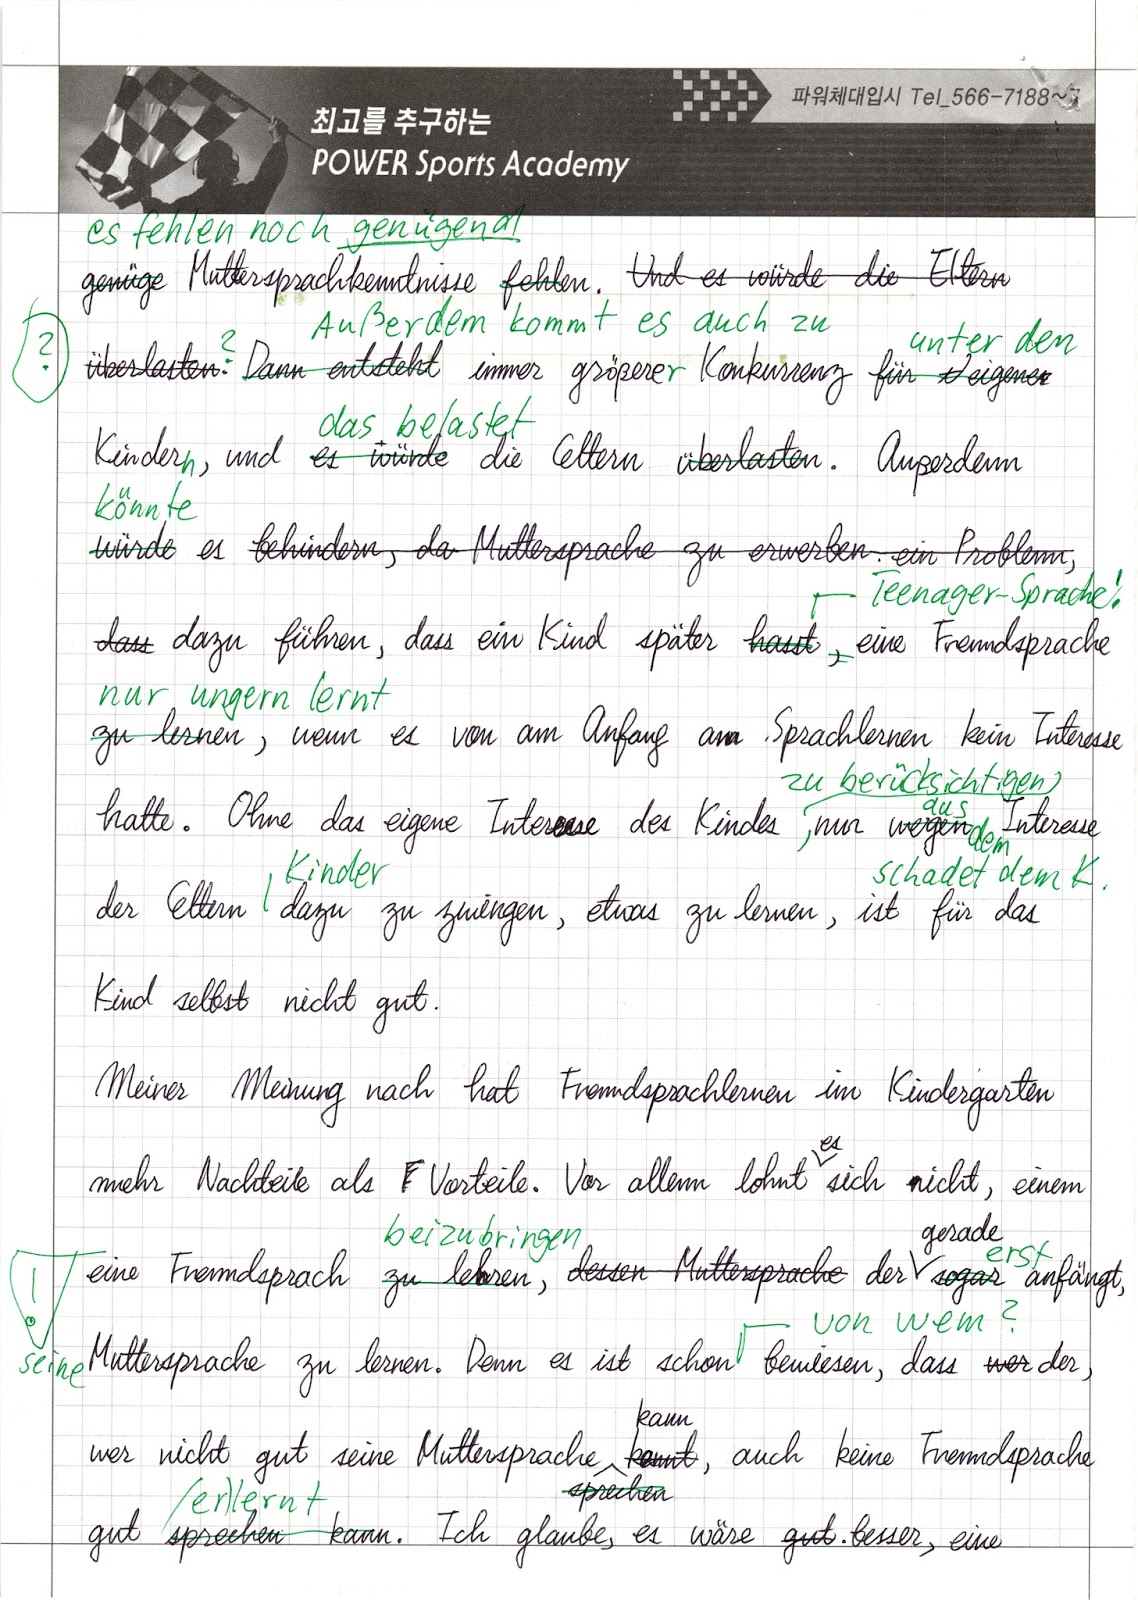 최고를 추구하는
POWER Sports Academy
파워체대입시 Tel_566-7188~7
es fehlen noch genügend
genüge Muttersprachkenntnisse fehlen. Und es würde die Eltern
Außerdem kommt es auch zu
unter den
?
?
überlasten. Dann entsteht immer größerer Konkurrenz für eigener
das belastet
Kindern, und es würde die Eltern überlasten. Außerdem
könnte
würde es behindern, da Muttersprache zu erwerben. ein Problem,
Teenager-Sprache!
dass dazu führen, dass ein Kind später hasst, eine Fremdsprache
nur ungern lernt
zu lernen, wenn es von am Anfang am Sprachlernen kein Interesse
zu berücksichtigen
aus
hatte. Ohne das eigene Interesse des Kindes, nur wegen dem Interesse
Kinder
schadet dem K.
der Eltern dazu zu zwingen, etwas zu lernen, ist für das
Kind selbst nicht gut.
Meiner Meinung nach hat Fremdsprachlernen im Kindergarten
es
mehr Nachteile als F Vorteile. Vor allem lohnt sich nicht, einem
beizubringen
gerade
erst
!
eine Fremdsprach zu lehren, dessen Muttersprache der sogar anfängt,
von wem?
seine Muttersprache zu lernen. Denn es ist schon bewiesen, dass wer der,
kann
wer nicht gut seine Muttersprache kennt, auch keine Fremdsprache
sprechen
(er)lernt
gut sprechen kann. Ich glaube, es wäre gut. besser, eine